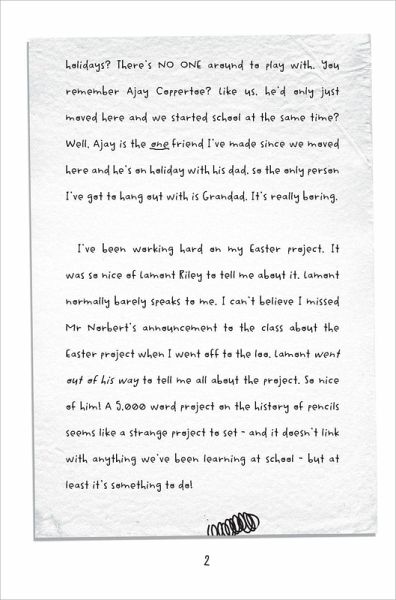 holidays? There's NO ONE around to play with. You
remember Ajay Coppertoe? Like us, he'd only just
moved here and we started school at the same time?
Well, Ajay is the one friend I've made since we moved
here and he's on holiday with his dad, so the only person
I've got to hang out with is Grandad. It's really boring.
I've been working hard on my Easter project. It
was so nice of Lamont Riley to tell me about it. Lamont
normally barely speaks to me. I can't believe I missed
Mr Norbert's announcement to the class about the
Easter project when I went off to the loo. Lamont went
out of his way to tell me all about the project. So nice
of him! A 5,000 word project on the history of pencils
seems like a strange project to set – and it doesn't link
with anything we've been learning at school – but at
least it's something to do!
2